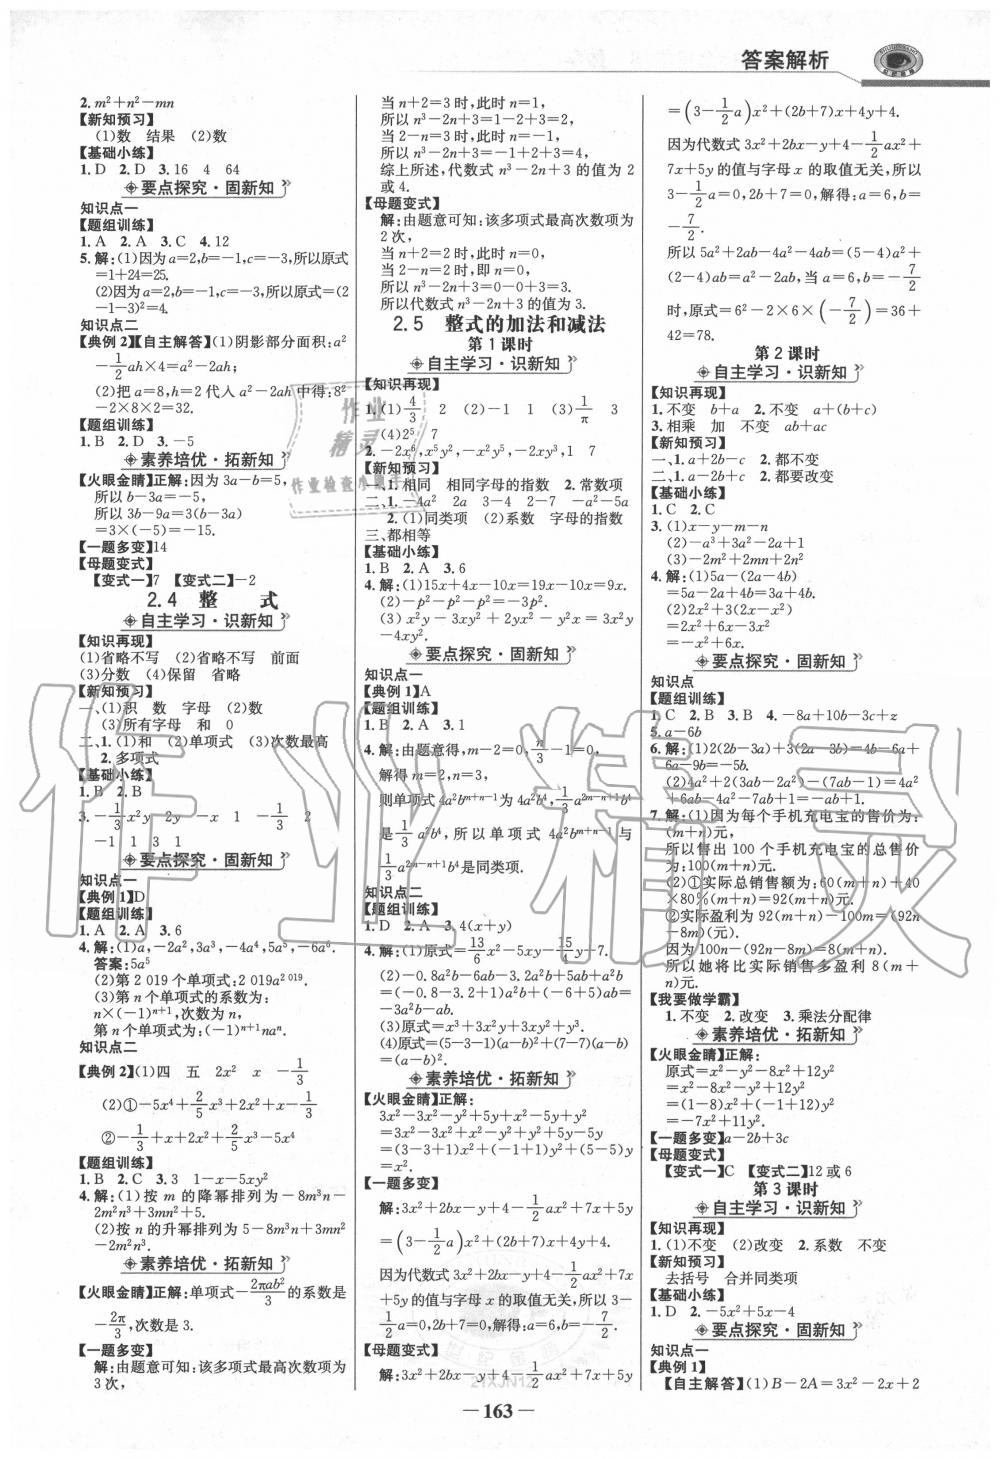 答案解析
2. m²+n²-mn
【新知预习】
(1)数 结果 (2)数
【基础小练】
1. D 2. D 3. 16 4 64
要点探究·固新知
知识点一
【题组训练】
1. A 2. A 3. C 4. 12
5. 解:(1)因为a=2,b=-1,c=-3,所以原式
=1+24=25.
(2)因为a=2,b=-1,c=-3,所以原式=(2
-1-3)²=4.
知识点二
【典例2】【自主解答】(1)阴影部分面积:a²
-1/2ah×4=a²-2ah;
(2)把a=8,h=2代入a²-2ah中得:8²
-2×8×2=32.
【题组训练】
1. B 2. D 3. -5
素养培优·拓新知
【火眼金睛】正解:因为3a-b=5,
所以b-3a=-5,
所以3b-9a=3(b-3a)
=3×(-5)=-15.
【一题多变】14
【母题变式】
【变式一】7 【变式二】-2
2.4 整 式
自主学习·识新知
【知识再现】
(1)省略不写 (2)省略不写 前面
(3)分数 (4)保留 省略
【新知预习】
一、(1)积 数 字母 (2)数
(3)所有字母 和 0
二、1. (1)和 (2)单项式 (3)次数最高
2. 多项式
【基础小练】
1. B 2. B
3. -1/3 x²y 2y -x 1 -1/3 2
-1 1 3 1
要点探究·固新知
知识点一
【典例1】D
【题组训练】
1. A 2. A 3. 6
4. 解:(1)a,-2a²,3a³,-4a⁴,5a⁵,-6a⁶.
答案:5a⁵
(2)第2 019个单项式:2 019a²⁰¹⁹.
(3)第n个单项式的系数为:
n×(-1)ⁿ⁺¹,次数为n,
第n个单项式为:(-1)ⁿ⁺¹naⁿ.
知识点二
【典例2】(1)四 五 2x² x -1/3
(2)①-5x⁴+2/5x³+2x²+x-1/3
②-1/3+x+2x²+2/5x³-5x⁴
【题组训练】
1. B 2. C 3. 3 1-x-5xy²
4. 解:(1)按m的降幂排列为-8m³n-
2m²n³+3mn²+5.
(2)按n的升幂排列为5-8m³n+3mn²
-2m²n³.
素养培优·拓新知
【火眼金睛】正解:单项式-2πab²/3的系数是
-2π/3,次数是3.
【一题多变】
解:由题意可知:该多项式最高次数项为
3次,
当n+2=3时,此时n=1,
所以n³-2n+3=1-2+3=2,
当2-n=3时,此时n=-1,
所以n³-2n+3=-1+2+3=4,
综上所述,代数式n³-2n+3的值为2
或4.
【母题变式】
解:由题意可知:该多项式最高次数项为
2次,
当n+2=2时,此时n=0,
当2-n=2时,即n=0,
所以n³-2n+3=0-0+3=3.
所以代数式n³-2n+3的值为3.
2.5 整式的加法和减法
第1课时
自主学习·识新知
【知识再现】
1. (1)4/3 2 (2)-1 1 (3)1/π 3
(4)2⁵ 7
2. -2x⁶,x⁵y²,-x²y⁵,-2xy³,1 7
【新知预习】
一、1. 相同 相同字母的指数 2. 常数项
二、1. -4a² 2a 3-4 2-7 -a²-5a
2. (1)同类项 (2)系数 字母的指数
三、都相等
【基础小练】
1. B 2. A 3. 6
4. 解:(1)15x+4x-10x=19x-10x=9x.
(2)-p²-p²-p²=-3p².
(3)x²y-3xy²+2yx²-y²x=3x²y
-4xy².
要点探究·固新知
知识点一
【典例1】A
【题组训练】
1. B 2. A 3. 1
4. 解:由题意得,m-2=0,n/3-1=0,
解得m=2,n=3,
则单项式4a²bᵐ⁺ⁿ⁻¹为4a²b⁴,1/3a²ᵐ⁻ⁿ⁺¹b⁴
是1/3a²b⁴,所以单项式4a²bᵐ⁺ⁿ⁻¹与
1/3a²ᵐ⁻ⁿ⁺¹b⁴是同类项.
知识点二
【题组训练】
1. D 2. A 3. 4(x+y)
4. 解:(1)原式=13/6x²-5xy-15/4y+7.
(2)-0.8a²b-6ab-3.2a²b+5ab+a²b
=(-0.8-3.2+1)a²b+(-6+5)ab=
-3a²b-ab.
(3)原式=x³+3x²y+3xy²+y³.
(4)原式=(5-4-1)xy²+(7-7)xy
=0.
素养培优·拓新知
【火眼金睛】正解:
3x²-3x²-y²+5y+x²-5y+y²
=3x²-3x²+x²-y²+y²+5y-5y
=(3-3+1)x²+(-1+1)y²+(5-5)y
=x².
【一题多变】
解:3x²+2bx-y+4-1/2ax²+7x+5y
=(3-1/2a)x²+(2b+7)x+4y+4.
因为代数式3x²+2bx-y+4-1/2ax²+7x
+5y的值与字母x的取值无关,所以3-
1/2a=0,2b+7=0,解得:a=6,b=-7/2.
【母题变式】
解:3x²+2bx-y+4-1/2ax²+7x+5y
=(3-1/2a)x²+(2b+7)x+4y+4.
因为代数式3x²+2bx-y+4-1/2ax²+
7x+5y的值与字母x的取值无关,所以
3-1/2a=0,2b+7=0,解得:a=6,b=
-7/2.
所以5a²+2ab-4a²-4ab=(5-4)a²+
(2-4)ab=a²-2ab,当a=6,b=-7/2
时,原式=6²-2×6×(-7/2)=36+
42=78.
第2课时
自主学习·识新知
【知识再现】
1. 不变 b+a 2. 不变 a+(b+c)
3. 相乘 加 不变 ab+ac
【新知预习】
一、1. a+2b-c 2. 都不变
二、1. a-2b+c 2. 都要改变
【基础小练】
1. C 2. C
3. (1)x-y-m-n
(2)-a³+3a²-2a+1
(3)-2m²+2mn+2n²
4. 解:(1)5a-(2a-4b)
=5a-2a+4b=3a+4b.
(2)2x²+3(2x-x²)
=2x²+6x-3x²
=-x²+6x.
要点探究·固新知
知识点
【题组训练】
1. C 2. B 3. B 4. -8a+10b-3c+z
5. a-6b
6. 解:(1)2(2b-3a)+3(2a-3b)=4b-6a+
6a-9b=-5b.
(2)4a²+2(3ab-2a²)-(7ab-1)=4a²
+6ab-4a²-7ab+1=-ab+1.
7. 解:(1)因为每个手机充电宝的售价为:
(m+n)元,
所以售出100个手机充电宝的总售价
为:100(m+n)元.
(2)①实际总销售额为:60(m+n)+40
×80%(m+n)=92(m+n)元.
②实际盈利为92(m+n)-100m=(92n
-8m)元.
因为100n-(92n-8m)=8(m+n).
所以她将比实际销售多盈利8(m+
n)元.
【我要做学霸】
1. 不变 2. 改变 3. 乘法分配律
素养培优·拓新知
【火眼金睛】正解:
原式=x²-y²-8x²+12y²
=x²-8x²-y²+12y²
=(1-8)x²+(-1+12)y²
=-7x²+11y².
【一题多变】a-2b+3c
【母题变式】
【变式一】C 【变式二】12或6
第3课时
自主学习·识新知
【知识再现】
1. (1)不变 (2)改变 2. 系数 不变
【新知预习】
去括号 合并同类项
【基础小练】
1. D 2. -5x²+5x-4
要点探究·固新知
知识点一
【典例1】
【自主解答】(1)B-2A=3x²-2x+2
-163-
作业精灵
作业
精灵
21XJN12